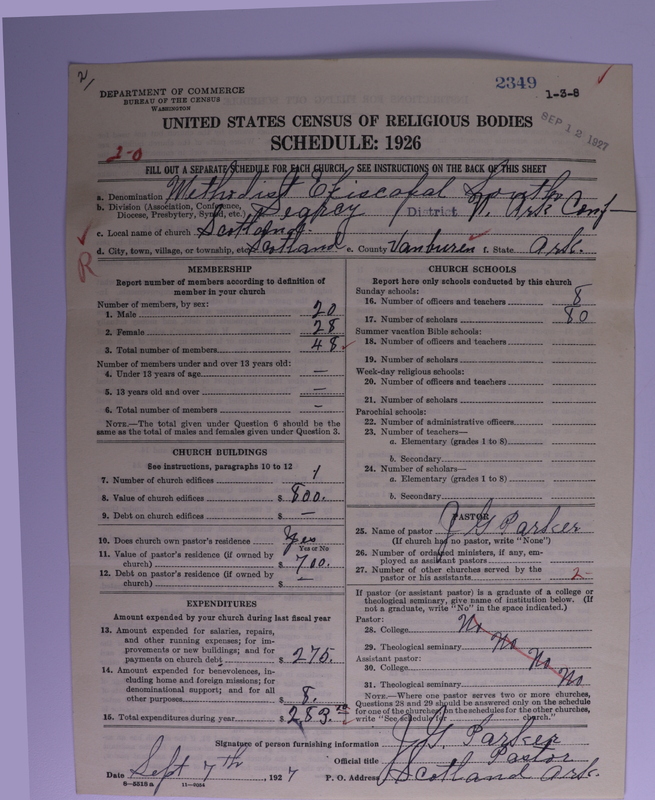 2/
2349
1-3-8
DEPARTMENT OF COMMERCE
BUREAU OF THE CENSUS
WASHINGTON
SEP 12 1927
UNITED STATES CENSUS OF RELIGIOUS BODIES
SCHEDULE: 1926
2-0
FILL OUT A SEPARATE SCHEDULE FOR EACH CHURCH. SEE INSTRUCTIONS ON THE BACK OF THIS SHEET
a. Denomination Methodist Episcopal South
b. Division (Association, Conference, Diocese, Presbytery, Synod, etc.) Searcy District N. Ark Conf
c. Local name of church Scotland
d. City, town, village, or township, etc. Scotland e. County Vanburen f. State Ark.
R
MEMBERSHIP
Report number of members according to definition of
member in your church
Number of members, by sex:
1. Male 20
2. Female 28
3. Total number of members 48
Number of members under and over 13 years old:
4. Under 13 years of age —
5. 13 years old and over —
6. Total number of members —
NOTE.—The total given under Question 6 should be the
same as the total of males and females given under Question 3.
CHURCH BUILDINGS
See instructions, paragraphs 10 to 12
7. Number of church edifices 1
8. Value of church edifices $ 800.
9. Debt on church edifices $ —
10. Does church own pastor's residence? Yes
Yes or No
11. Value of pastor's residence (if owned by
church) $ 700.
12. Debt on pastor's residence (if owned by
church) $ —
EXPENDITURES
Amount expended by your church during last fiscal year
13. Amount expended for salaries, repairs,
and other running expenses; for im-
provements or new buildings; and for
payments on church debt $ 275.
14. Amount expended for benevolences, in-
cluding home and foreign missions; for
denominational support; and for all
other purposes $ 8.
15. Total expenditures during year $ 283.
CHURCH SCHOOLS
Report here only schools conducted by this church
Sunday schools:
16. Number of officers and teachers 8
17. Number of scholars 80
Summer vacation Bible schools:
18. Number of officers and teachers
19. Number of scholars
Week-day religious schools:
20. Number of officers and teachers
21. Number of scholars
Parochial schools:
22. Number of administrative officers
23. Number of teachers—
a. Elementary (grades 1 to 8)
b. Secondary
24. Number of scholars—
a. Elementary (grades 1 to 8)
b. Secondary
PASTOR
25. Name of pastor J G Parker
(If church has no pastor, write "None")
26. Number of ordained ministers, if any, em-
ployed as assistant pastors
27. Number of other churches served by the
pastor or his assistants 2
If pastor (or assistant pastor) is a graduate of a college or
theological seminary, give name of institution below. (If
not a graduate, write "No" in the space indicated.)
Pastor:
28. College No
29. Theological seminary No
Assistant pastor:
30. College No
31. Theological seminary No
NOTE.—Where one pastor serves two or more churches,
Questions 28 and 29 should be answered only on the schedule
for one of the churches; on the schedules for the other churches,
write "See schedule for church."
Signature of person furnishing information J. G. Parker
Official title Pastor
Date Sept 7th, 1927 P. O. Address Scotland Ark.
8—5518 a 11—9034